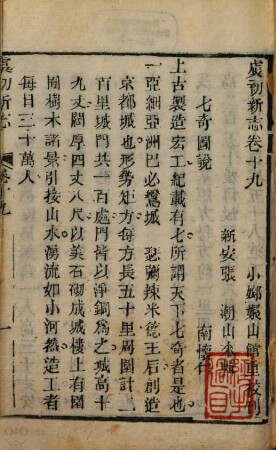 虞初新志卷十九
小嫏嬛山館重校刊
新安張 潮山來輯
七奇圖說 南懷仁
上古製造宏工紀載有七所謂天下七奇者是也
一亞細亞洲巴必鸞城 瑟彌辣米德王后創造
京都城池形勢矩方每方長五十里周圍計二
百里城門共一百處門皆以淨銅爲之城高十
九丈闊厚四丈八尺以美石砌成城樓上有園
囿樹木諸景引接山水湧流如小河然造工者
每日三十萬人
虞初新志
卷十九
一